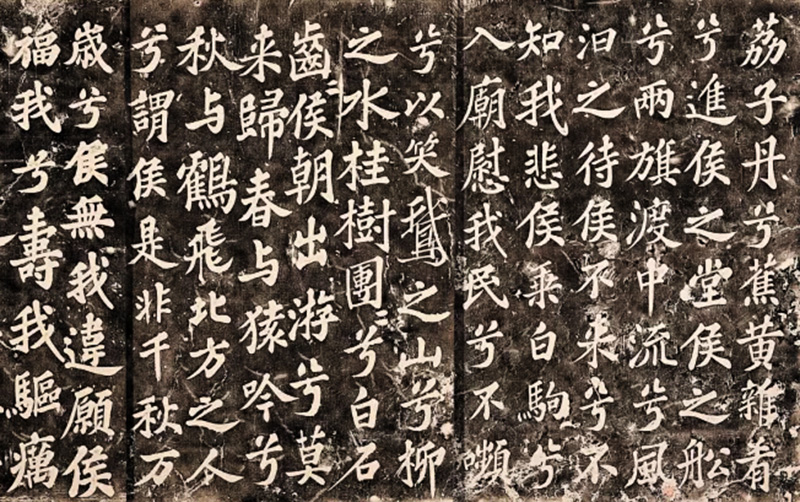 荔子丹兮蕉黄雜肴
兮進侯之堂侯之舩
兮兩旗渡中流兮風
汩之待侯不来兮不
知我悲侯乘白駒兮
入廟慰我民兮不嚬
兮以笑鵞之山兮柳
之水桂樹團〻兮白石
齒〻侯朝出游兮莫
来歸春与猿吟兮
秋与鶴飛北方之人
兮謂侯是非千秋万
歲兮侯無我違願侯
福我兮壽我驅癘